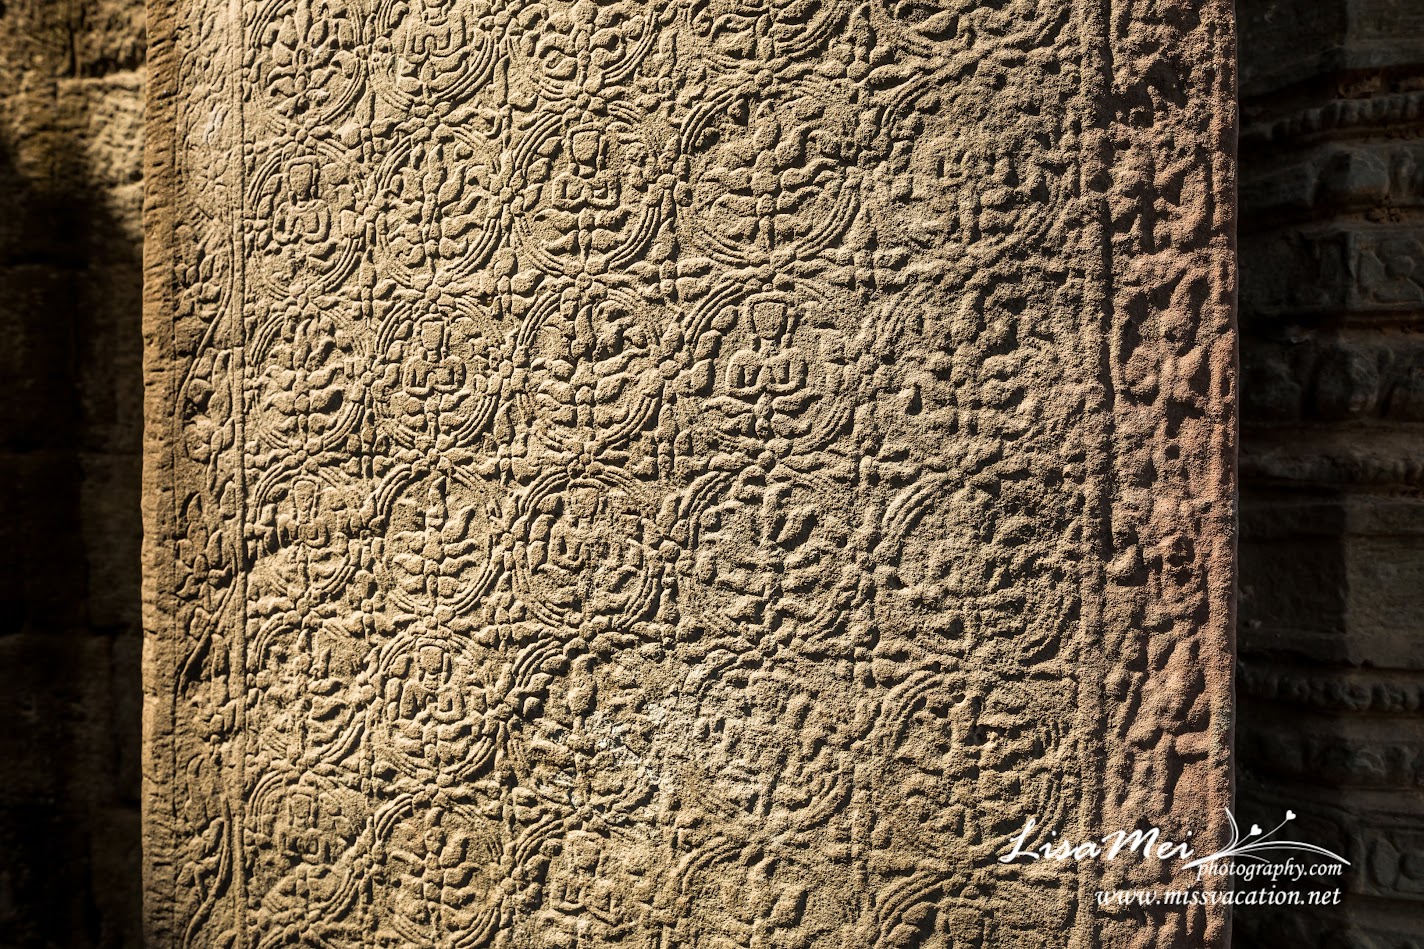 LisaMei
photography.com
www.missvacation.net